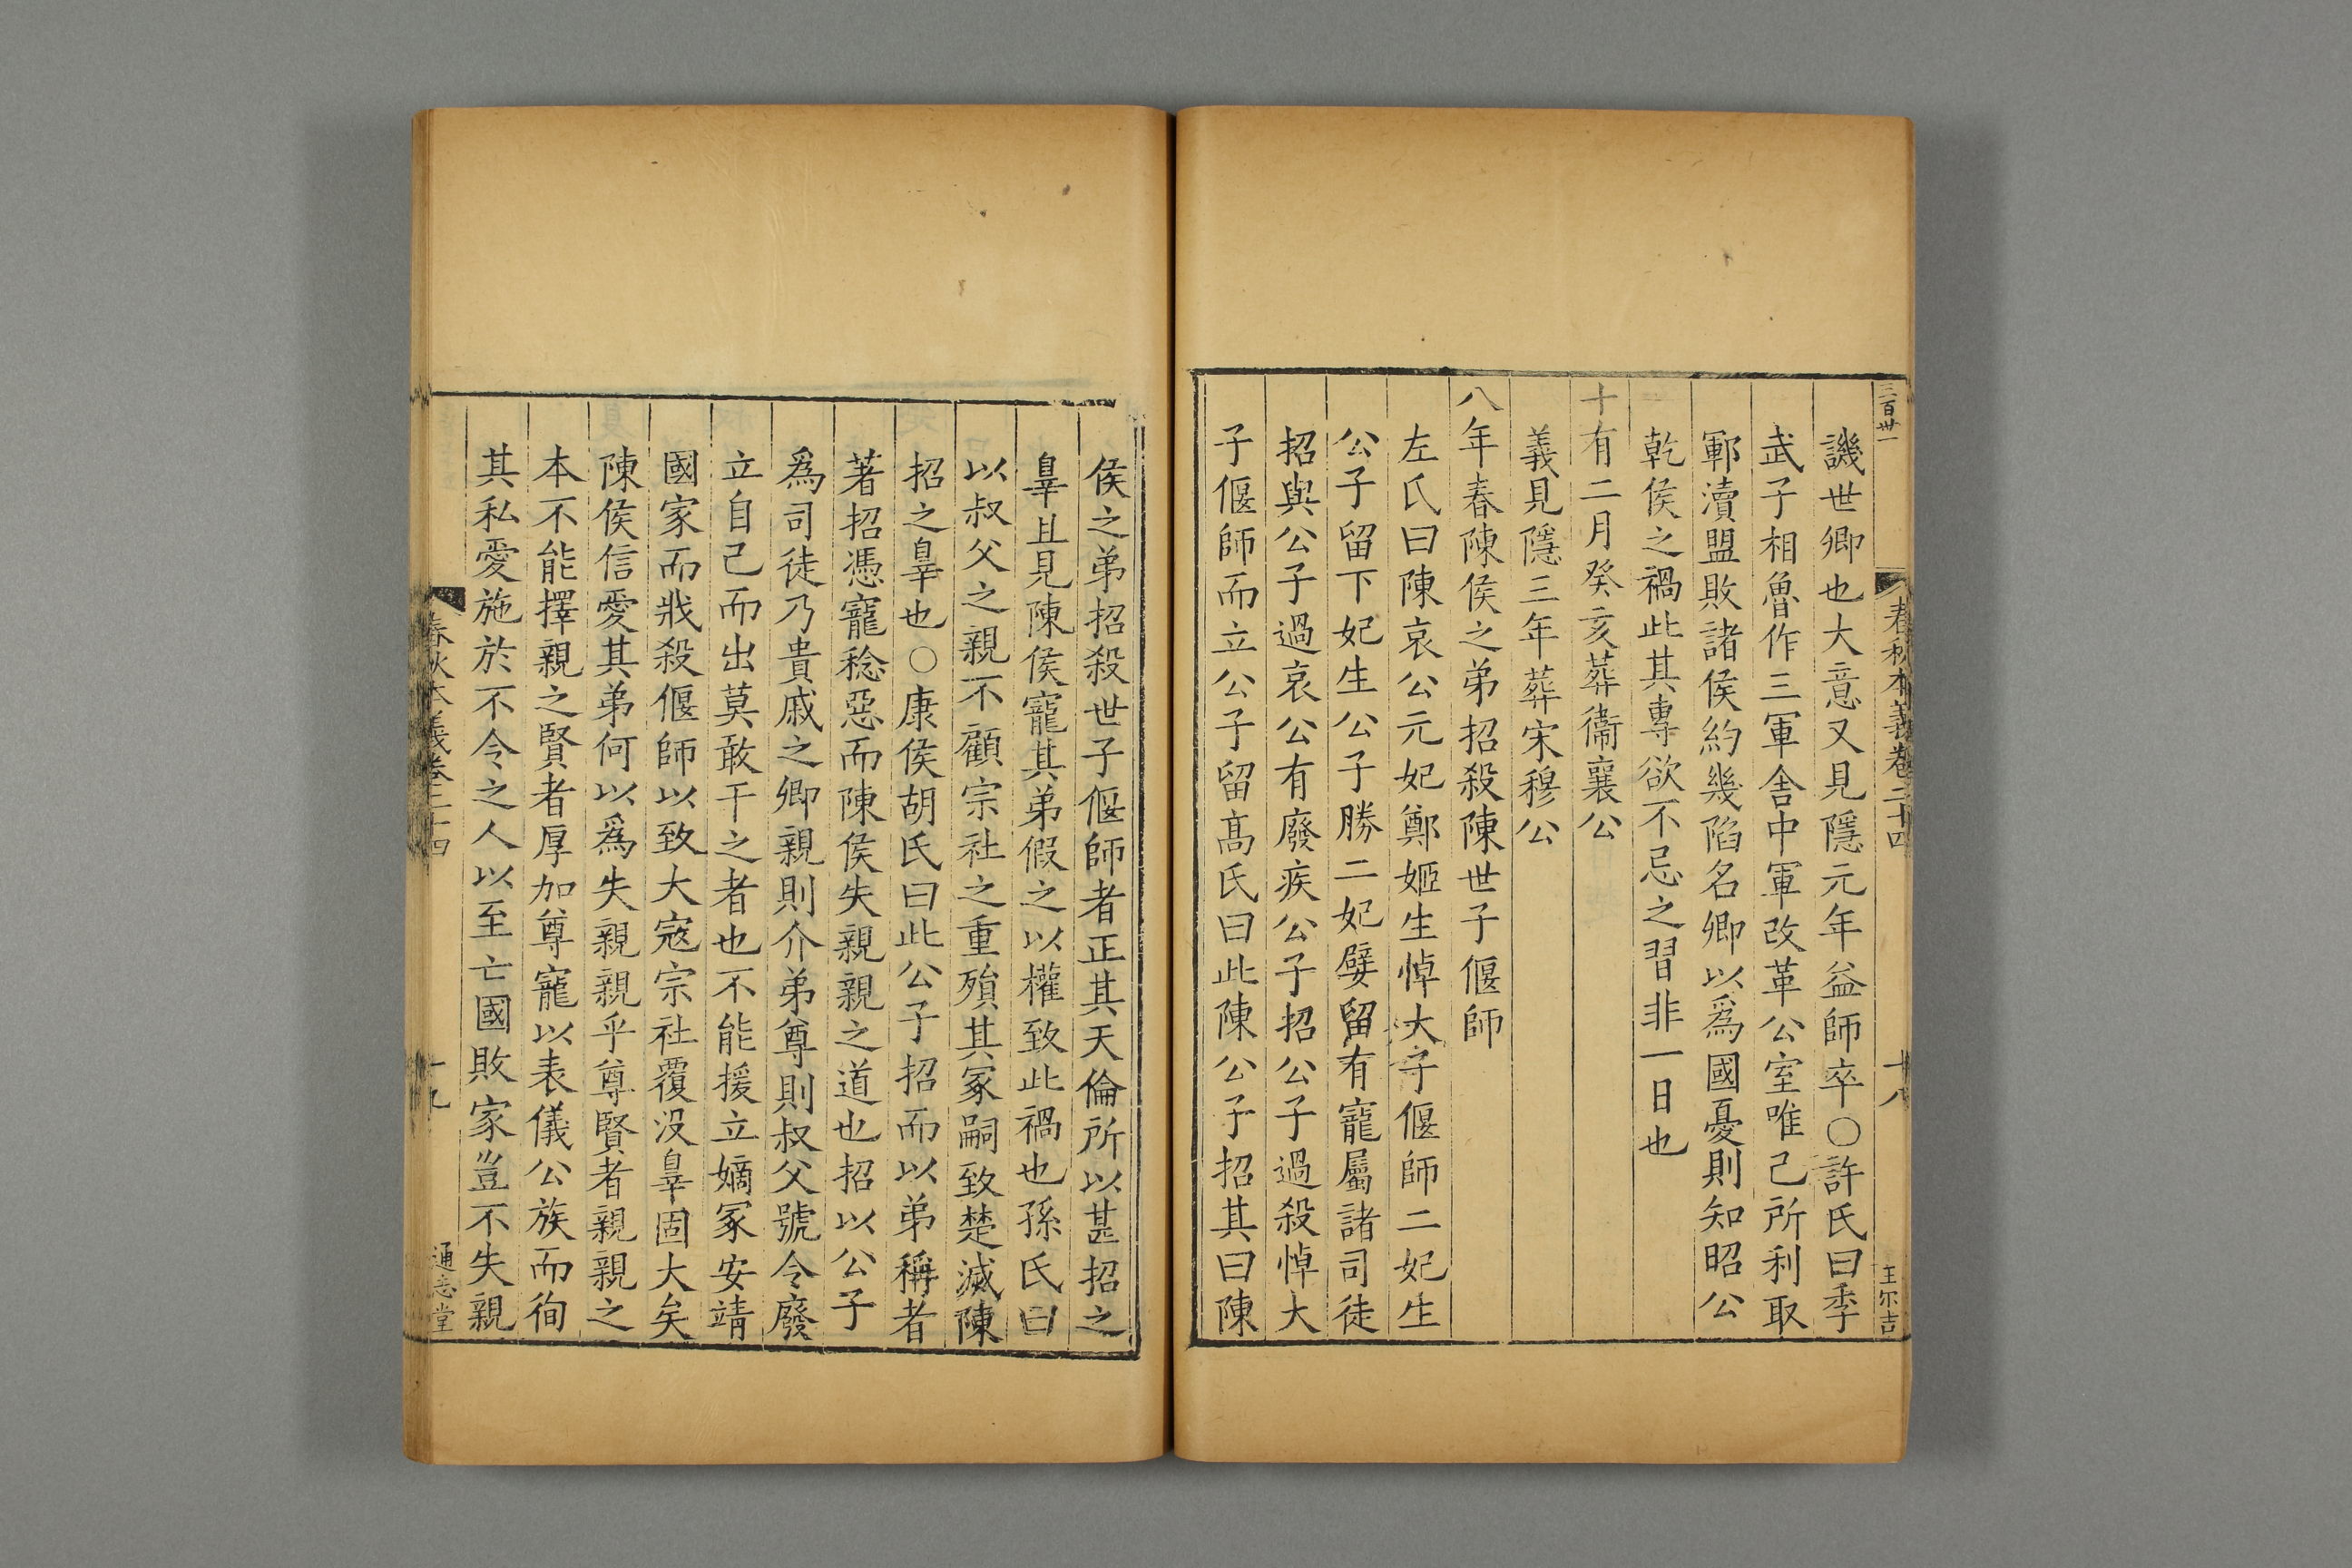 三百卅一
春秋本義卷二十四
十八
王尔吉
譏世卿也大意又見隱元年益師卒○許氏曰季
武子相魯作三軍舍中軍改革公室唯己所利取
鄆瀆盟敗諸侯約幾陷名卿以爲國憂則知昭公
乾侯之禍此其專欲不忌之習非一日也
十有二月癸亥葬衞襄公
義見隱三年葬宋穆公
八年春陳侯之弟招殺陳世子偃師
左氏曰陳哀公元妃鄭姬生悼大子偃師二妃生
公子留下妃生公子勝二妃嬖留有寵屬諸司徒
招與公子過哀公有廢疾公子招公子過殺悼大
子偃師而立公子留髙氏曰此陳公子招其曰陳
侯之弟招殺世子偃師者正其天倫所以甚招之
辠且見陳侯寵其弟假之以權致此禍也孫氏曰
以叔父之親不顧宗社之重殞其冢嗣致楚滅陳
招之辠也○康侯胡氏曰此公子招而以弟稱者
著招憑寵稔惡而陳侯失親親之道也招以公子
爲司徒乃貴戚之卿親則介弟尊則叔父號令廢
立自己而出莫敢干之者也不能援立嫡冢安靖
國家而戕殺偃師以致大寇宗社覆没辠固大矣
陳侯信愛其弟何以爲失親親乎尊賢者親親之
本不能擇親之賢者厚加尊寵以表儀公族而徇
其私愛施於不令之人以至亡國敗家豈不失親
春秋本義卷二十四
十九
通志堂